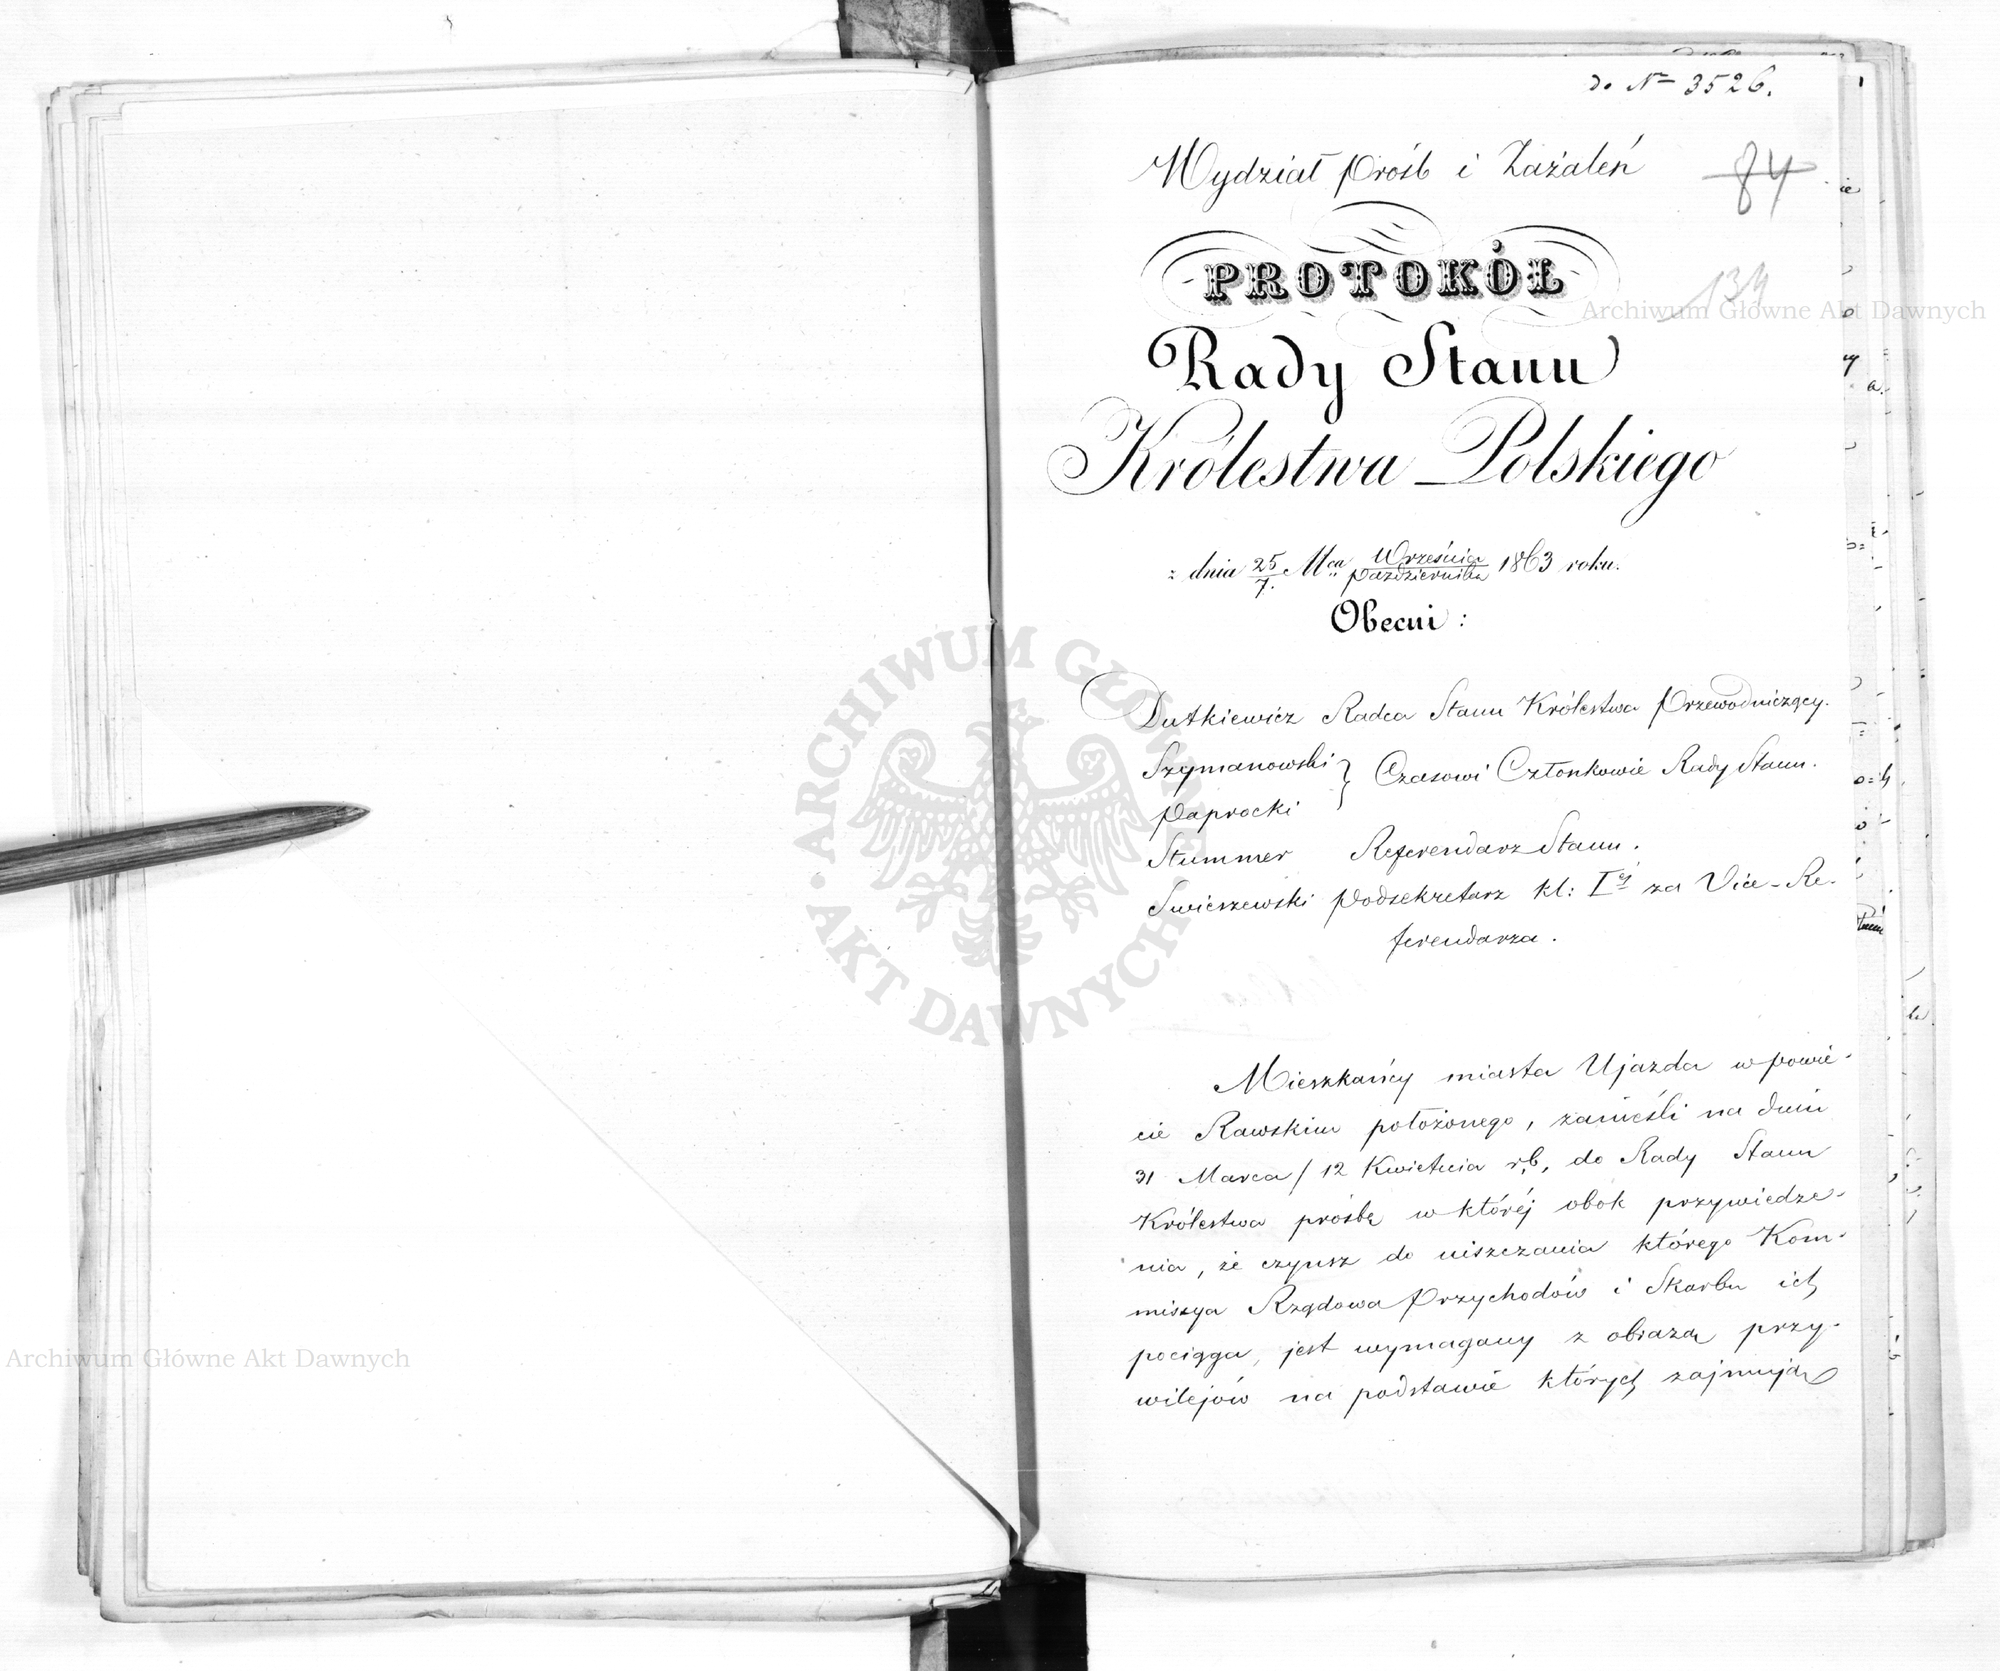 do № 3526.
Wydział Próśb i Zażaleń
84
134
PROTOKÓŁ
Rady Stanu
Królestwa Polskiego
z dnia 25/7. Mca Września/Października 1863 roku.
Obecni:
Dutkiewicz Radca Stanu Królestwa Przewodniczący.
Szymanowski } Czasowi Członkowie Rady Stanu.
Paprocki
Stummer Referendarz Stanu.
Swieszewski Podsekretarz kl: Iej za Vice-Re-
ferendarza.
Mieszkańcy miasta Ujazda w powie-
cie Rawskim położonego, zanieśli na dniu
31 Marca / 12 Kwietnia r.b, do Rady Stanu
Królestwa prośbę w któréj obok przywiedze-
nia, że czynsz do uiszczania którego Kom-
missya Rządowa Przychodów i Skarbu ich
pociąga, jest wymagany z obrazą przy-
wilejów na podstawie których zajmują
Archiwum Główne Akt Dawnych
ARCHIWUM GŁÓWNE AKT DAWNYCH
Archiwum Główne Akt Dawnych